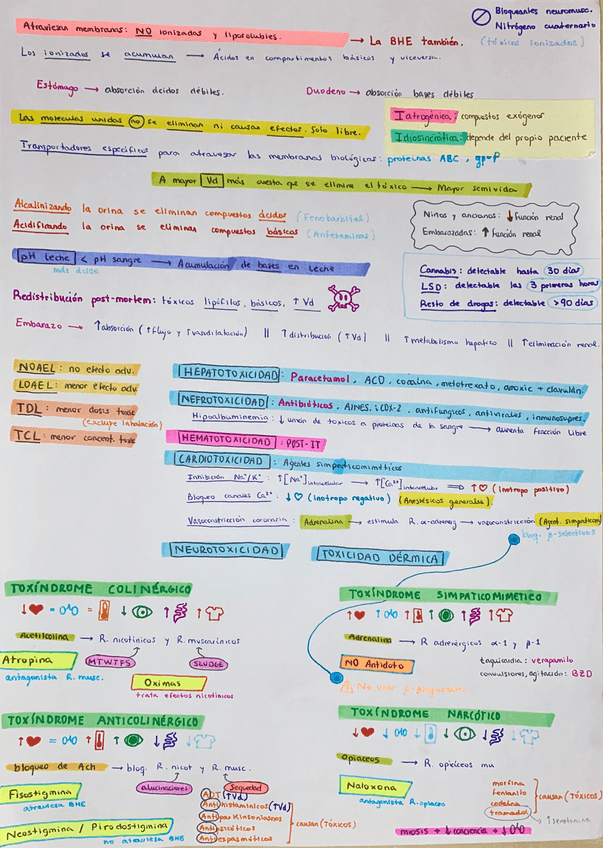 Bloqueantes neuromusc.
Nitrógeno cuaternario
(tóxicos ionizados)
Atraviesan membranas: NO ionizados y liposolubles. → La BHE también.
Los ionizados se acumulan → Ácidos en compartimentos básicos y viceversa.
Estómago → absorción ácidos débiles.
Duodeno → absorción bases débiles
Las moléculas unidas no se eliminan ni causan efectos. Solo libre.
Iatrogénica: compuestos exógenos
Idiosincrática: depende del propio paciente
Transportadores específicos para atravesar las membranas biológicas: proteínas ABC, gp-P
A mayor Vd más cuesta que se elimine el tóxico → Mayor semivida
Alcalinizando la orina se eliminan compuestos ácidos (Fenobarbital)
Acidificando la orina se eliminan compuestos básicos (Anfetaminas)
Niños y ancianos: ↓ función renal
Embarazadas: ↑ función renal
pH leche < pH sangre → Acumulación de bases en leche
más ácido
Cannabis: detectable hasta 30 días
LSD: detectable las 3 primeras horas
Resto de drogas: detectable >90 días
Redistribución post-mortem: tóxicos lipófilos, básicos, ↑ Vd
Embarazo → ↑ absorción (↑ flujo y ↑ vasodilatación) || ↑ distribución (↑ Vd) || ↑ metabolismo hepático || ↑ eliminación renal.
NOAEL: no efecto adv.
LOAEL: menor efecto adv
TDL: menor dosis tóxic
(excluye inhalación)
TCL: menor concent. tóxic
HEPATOTOXICIDAD: Paracetamol, ACO, cocaína, metotrexato, amoxic + clavulán.
NEFROTOXICIDAD: Antibióticos, AINES, iCOX-2, antifúngicos, antivirales, inmunosupres.
Hipoalbuminemia: ↓ unión de tóxicos a proteínas de la sangre → aumenta fracción libre
HEMATOTOXICIDAD: POST-IT
CARDIOTOXICIDAD: Agentes simpaticomiméticos
Inhibición Na⁺/K⁺: ↑[Na⁺]intracelular → ↑[Ca²⁺]intracelular ⇒ ↑♡ (inotropo positivo)
Bloqueo canales Ca²⁺: ↓♡ (inotropo negativo) (Anestésicos generales)
Vasoconstricción coronaria: Adrenalina → estimula R. α-adrenérg → vasoconstricción (Agent. simpaticom)
bloq. β-selectivos
NEUROTOXICIDAD
TOXICIDAD DÉRMICA
TOXÍNDROME COLINÉRGICO
Acetilcolina → R. nicotínicos y R. muscarínicos
MTWTFS
SLUDGE
Atropina
antagonista R. musc.
Oximas
trata efectos nicotínicos
TOXÍNDROME SIMPATICOMIMÉTICO
Adrenalina → R adrenérgicos α-1 y β-1
NO Antídoto
taquicardia: verapamilo
convulsiones, agitación: BZD
No usar β-bloqueantes
TOXÍNDROME ANTICOLINÉRGICO
bloqueo de Ach → bloq. R. nicot y R. musc.
alucinaciones
Sequedad
Fisostigmina
atraviesa BHE
Neostigmina / Pirodostigmina
no atraviesa BHE
ADT (↑Vd)
Antihistamínicos (↑Vd)
Antiparkinsonianos
Antipsicóticos
Antiespasmóticos
causan (TÓXICOS)
TOXÍNDROME NARCÓTICO
Opiáceos → R. opiáceos mu
Naloxona
antagonista R.opiáceo
morfina
fentanilo
codeína
tramadol
causan (TÓXICOS)
↑ serotonina
miosis + ↓ consciencia + ↓